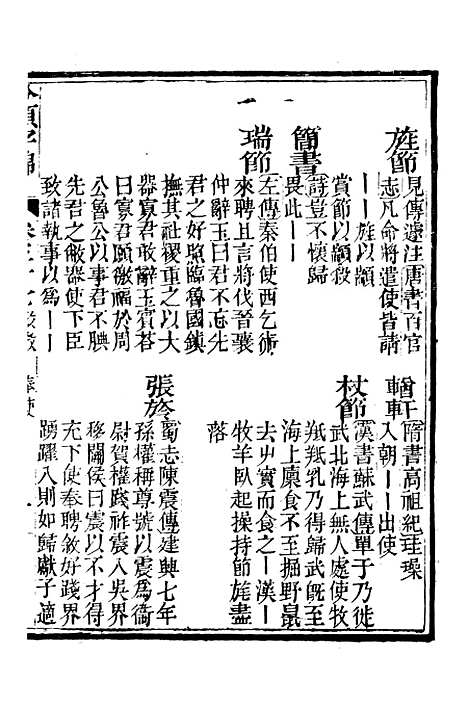 旌節
見傳遽注唐書百官
志凡命將遣使皆請
——旌以顓
賞節以顓殺
簡書
詩豈不懷歸
畏此——
瑞節
左傳秦伯使西乞術
來聘且言將伐晉襄
仲辭玉曰君不忘先
君之好照臨魯國鎮
撫其社稷重之以大
器寡君敢辭玉賓荅
曰寡君願徼福於周
公魯公以事君不腆
先君之敝器使下臣
致諸執事以爲——
輶軒
隋書高祖紀珪璪
入朝——出使
杖節
漢書蘇武傳單于乃徙
武北海上無人處使牧
羝羝乳乃得歸武旣至
海上廩食不至掘野鼠
去屮實而食之—漢—
牧羊臥起操持節旄盡
落
張旍
蜀志陳震傳建興七年
孫權稱尊號以震爲衞
尉賀權踐祚震入吳界
移關侯曰震以不才得
充下使奉聘敘好踐界
踴躍入則如歸獻子適
奉使